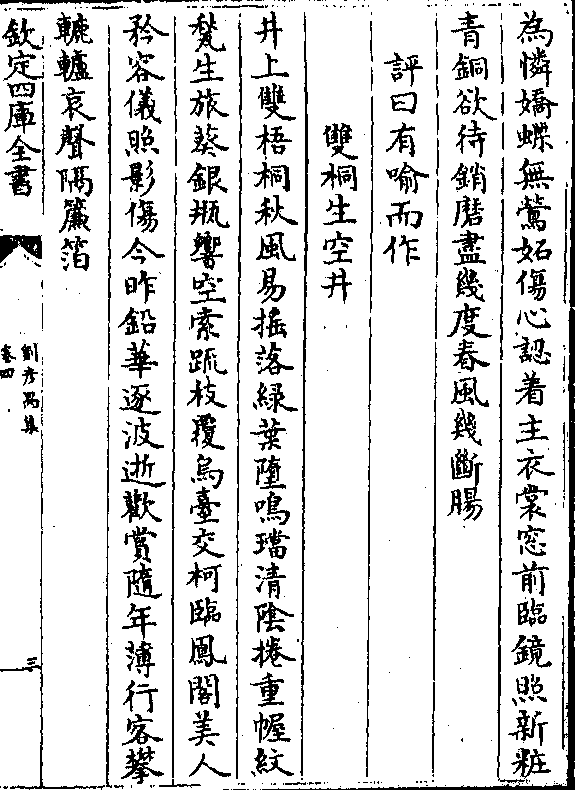 為憐嬌蝶無鶯妬傷心認着主衣裳窓前臨鏡照新粧
青銅欲待銷磨盡幾度春風幾斷腸
評曰有喻而作
雙桐生空井
井上雙梧桐秋風易揺落緑葉墮鳴璫清陰捲重幄紋
甃生旅葵銀瓶響空索踈枝覆烏臺交柯臨鳳閣美人
矜容儀照影傷今昨鉛華逐波逝歡賞隨年薄行客攀
轆轤哀聲隔簾箔
欽定四庫全書
劉彥昺集
卷四
三